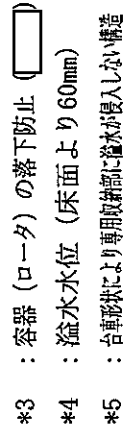 *3 : 容器（ロータ）の落下防止（　　）
*4 : 溢水水位（床面より60mm）
*5 : 台車形状により専用収納部に溢水が侵入しない構造